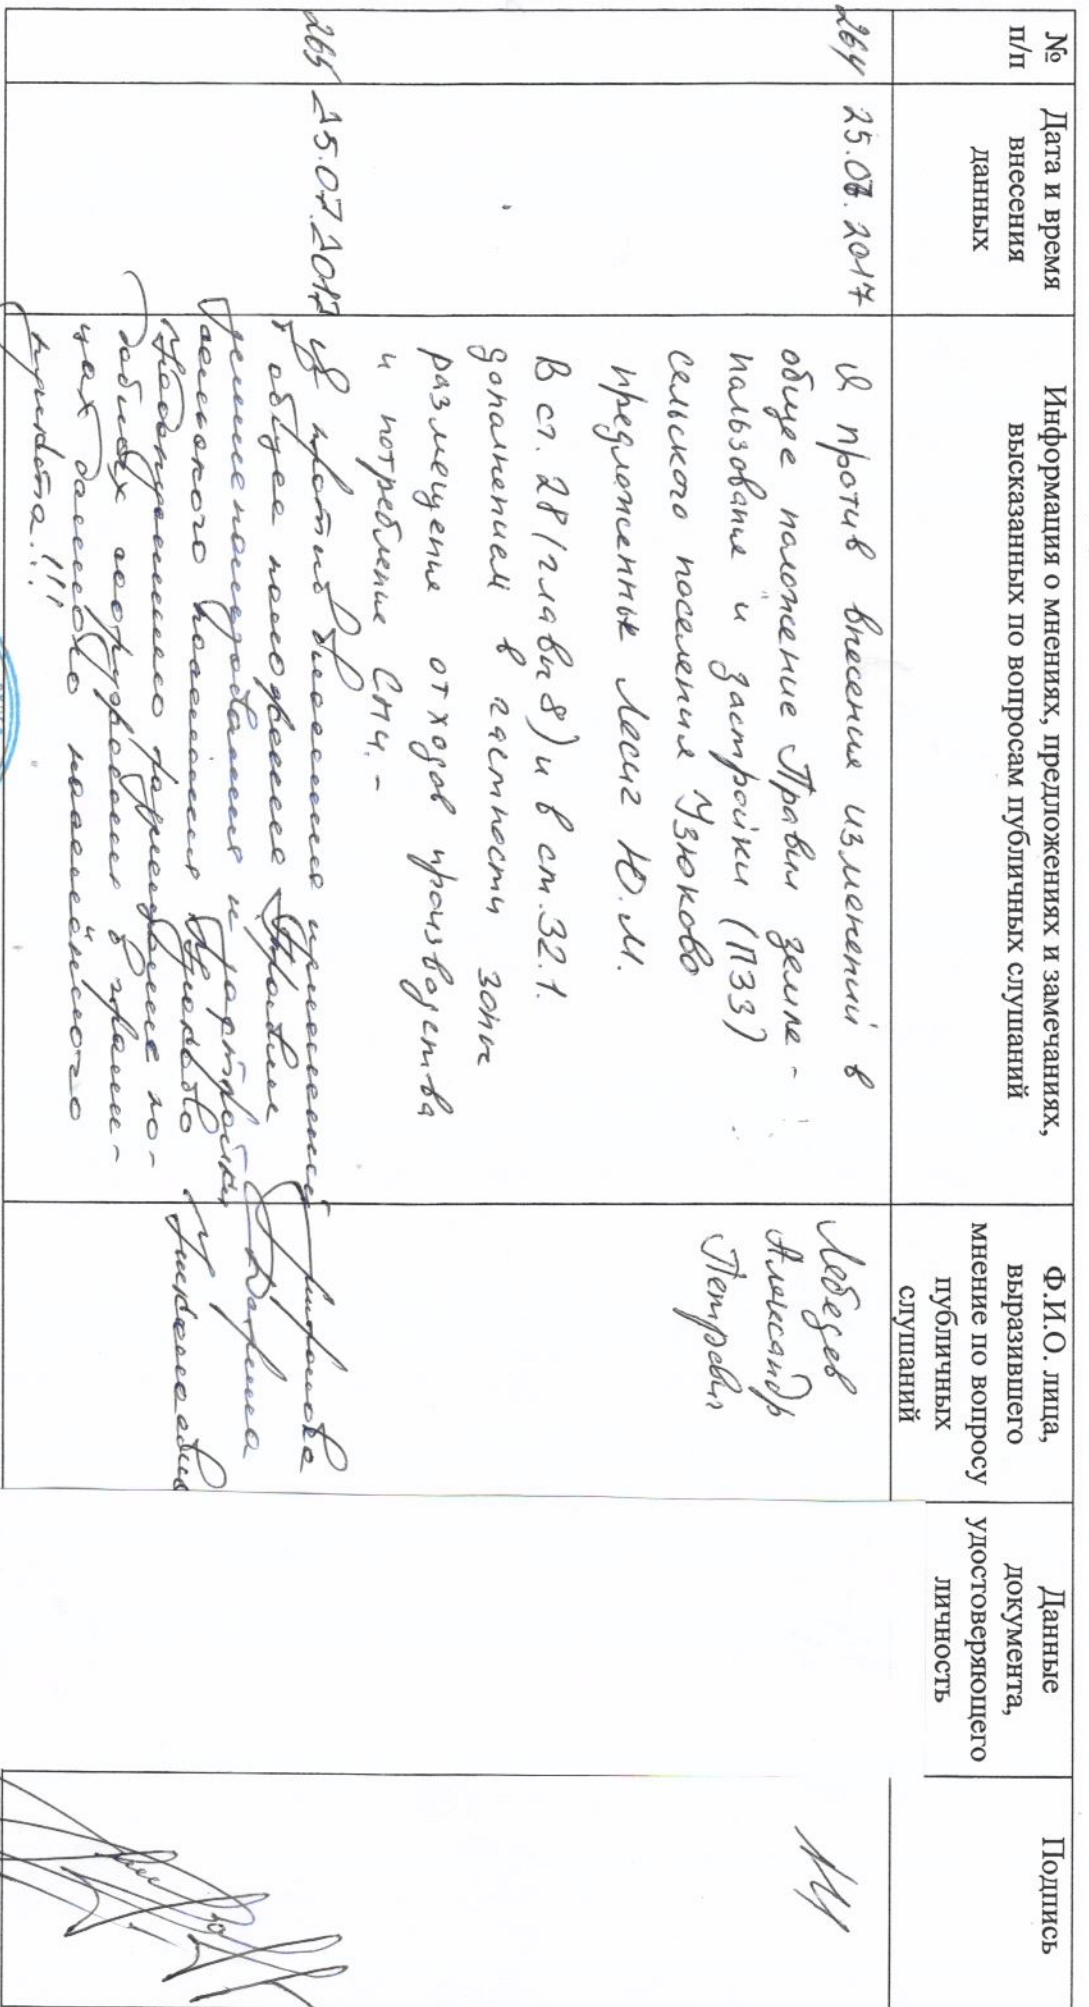 №
п/п
Дата и время
внесения
данных
Информация о мнениях, предложениях и замечаниях,
высказанных по вопросам публичных слушаний
Ф.И.О. лица,
выразившего
мнение по вопросу
публичных
слушаний
Данные
документа,
удостоверяющего
личность
Подпись
264
25.07.2017
Я против внесения изменений в
общие положение Правил земле-
пользование и застройки (ПЗЗ)
сельского поселения Узюково
предложенных Лесиг Ю.М.
В ст. 28 (главы 8) и в ст. 32.1.
дополнением в частности зоны
размещение отходов производства
и потребление Сп4.-
Лебедев
Александр
Петрович
265
25.07.2017
Я против внесения изменений
в общее положение Правил
землепользования и застройки
сельского поселения Узюково
Недопущению размещение по-
добных сооружений в грани-
цах данного населённого
пункта!!!
Дарья
Николаевна